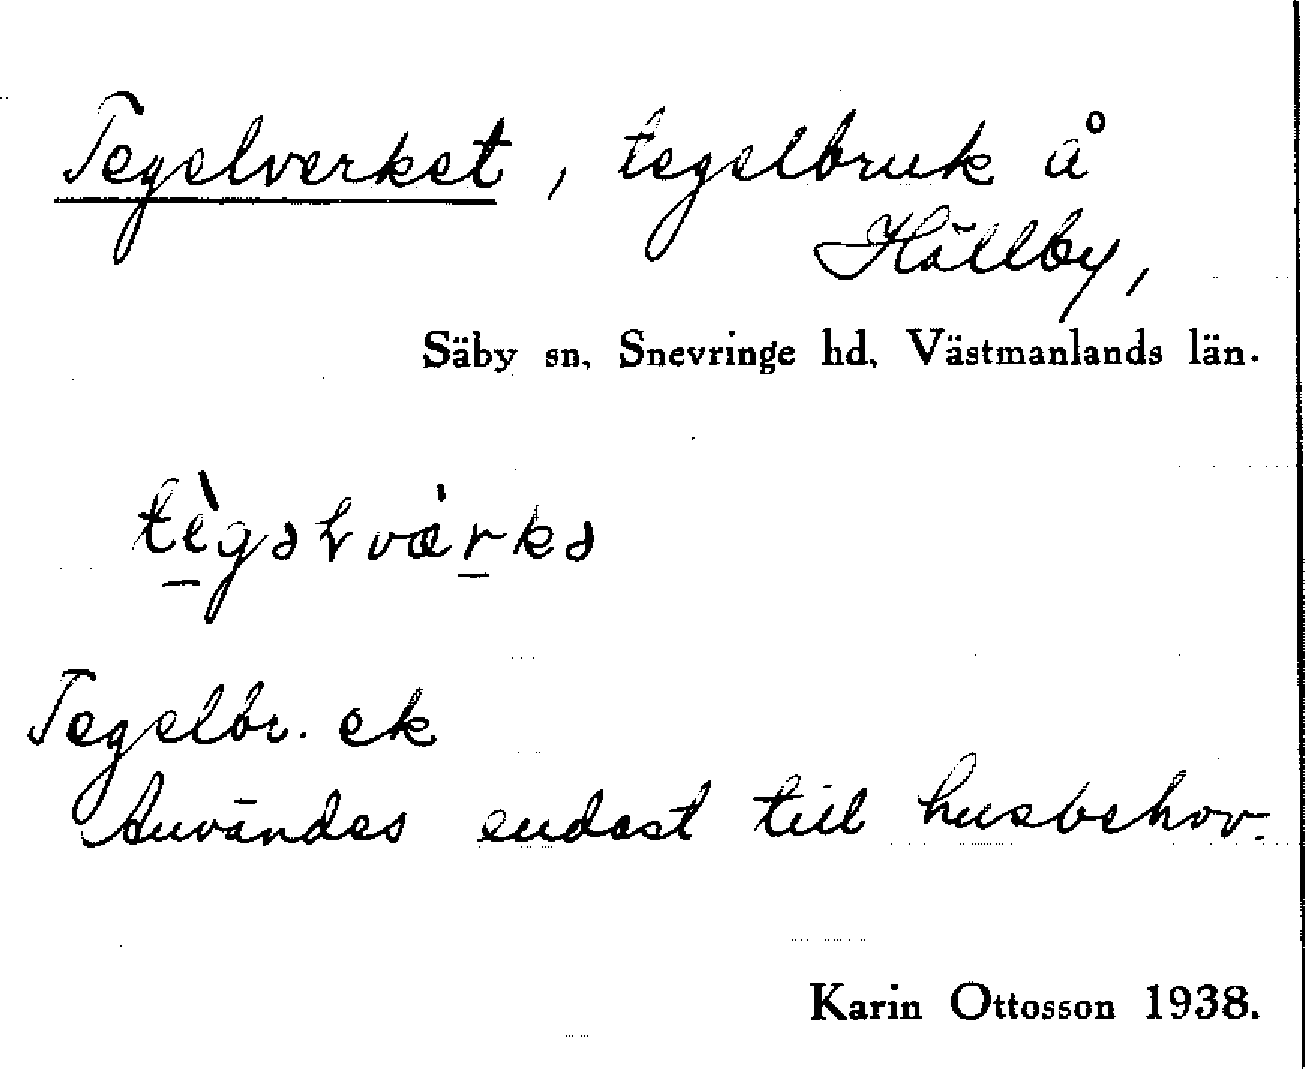 Tegelverket, tegelbruk å
Hällby,
Säby sn, Snevringe hd, Västmanlands län.
Tegelbr. ek
Användes endast till husbehov.
Karin Ottosson 1938.